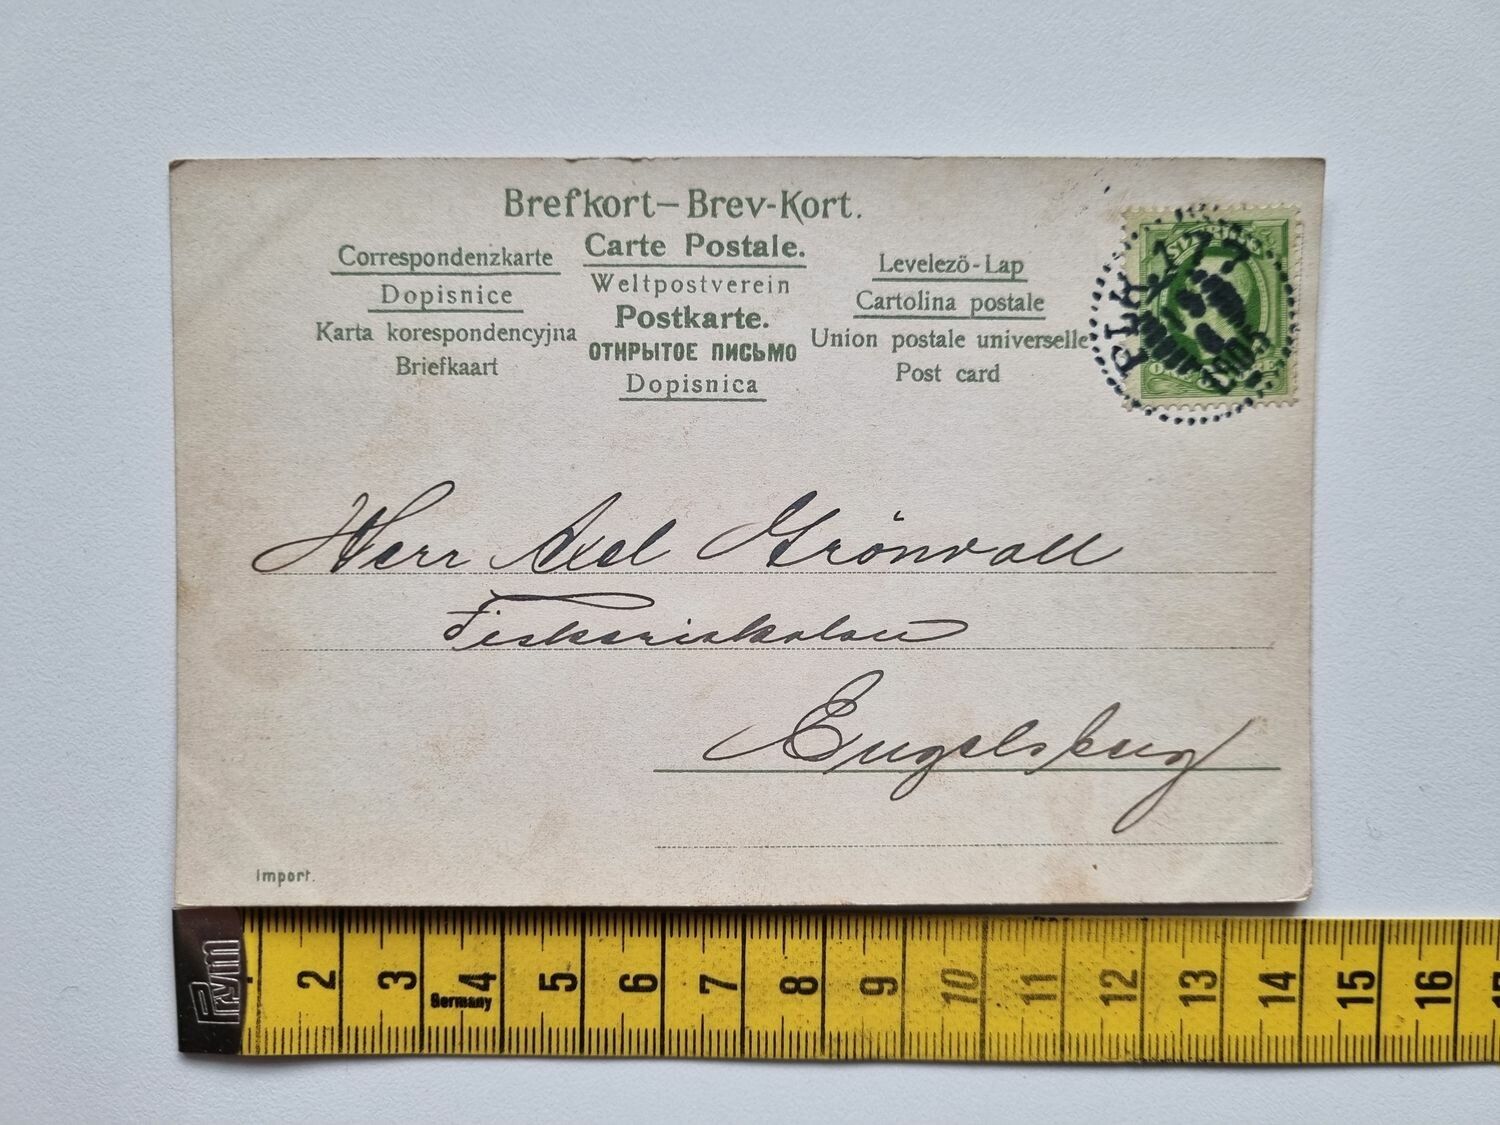 Brefkort – Brev-Kort.
Carte Postale.
Correspondenzkarte
Weltpostverein
Levelező - Lap
Dopisnice
Postkarte.
Cartolina postale
Karta korespondencyjna
ОТКРЫТОЕ ПИСЬМО
Union postale universelle
Briefkaart
Dopisnica
Post card
PLK
1905
Herr Axel Grönvall
Fiskeriskolan
Engelsburg
Import.
Prym
2 3 4 5 6 7 8 9 10 11 12 13 14 15 16
Germany